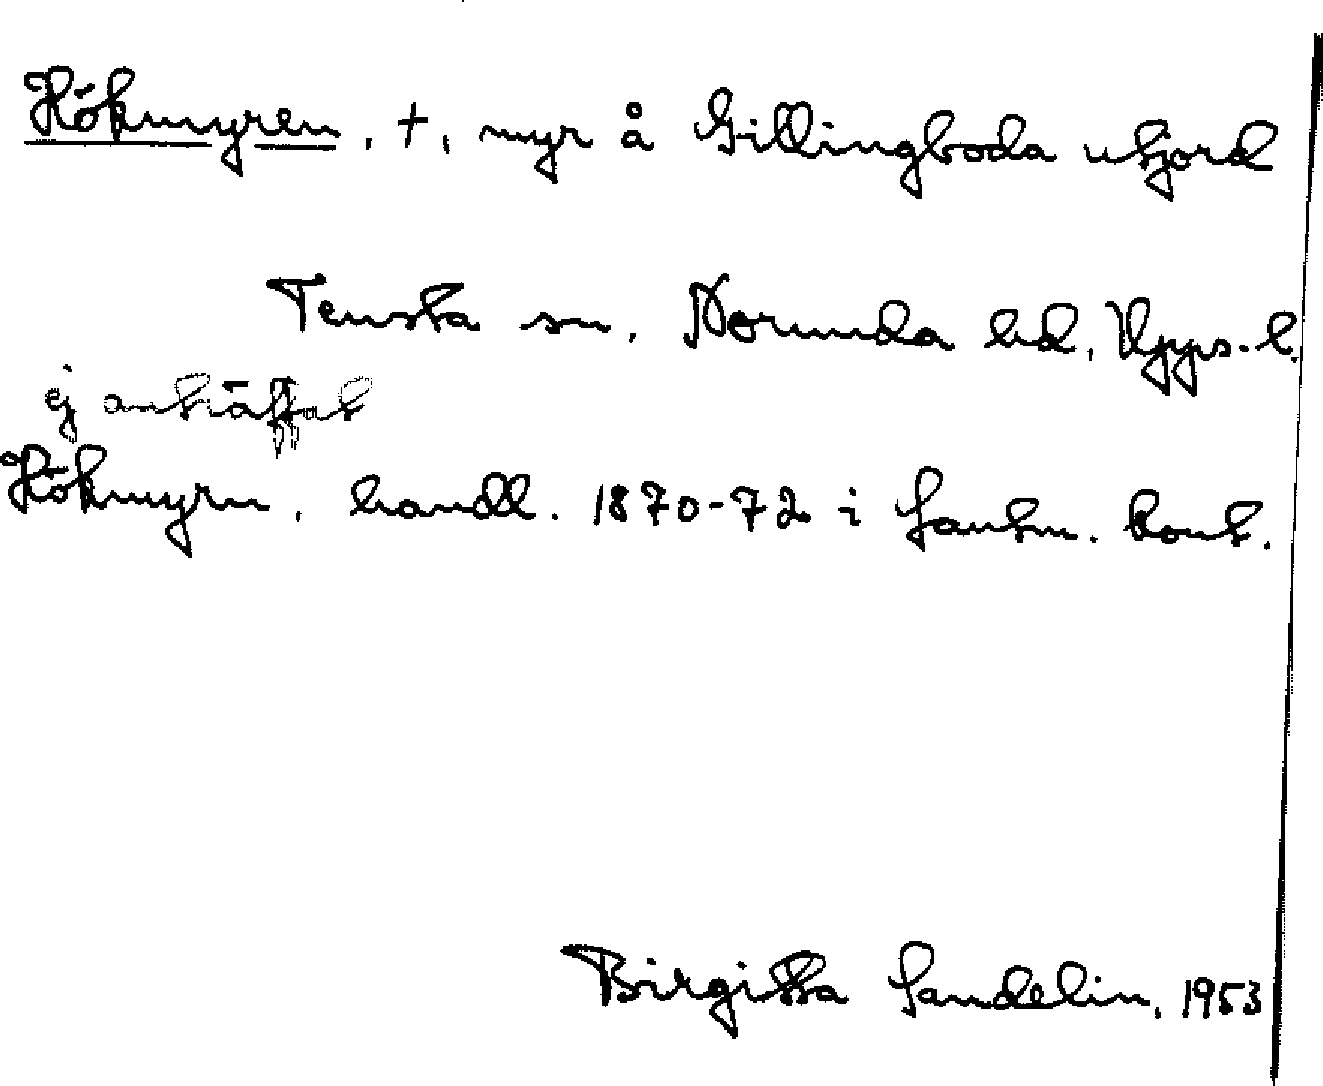 Hökmyren, †, myr å Gillingboda utjord
Tensta sn. Norunda hd. Upps. l.
ej anträffat
Hökmyrn, handl. 1870-72 i Lantm. kont.
Birgitta Sandelin, 1953